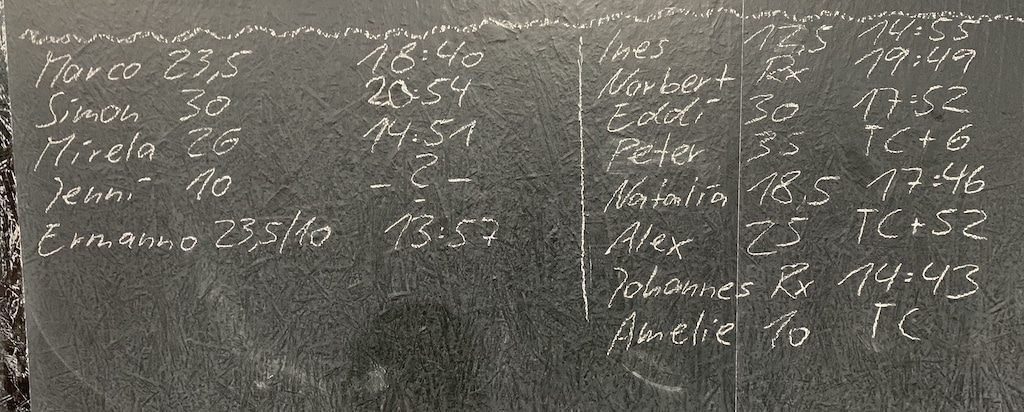 Marco 23,5 18:40
Simon 30 20:54
Mirela 26 14:51
Jenni 10 - ? -
Ermanno 23,5/10 13:57
Ines 12,5 14:55
Norbert Rx 19:49
Eddi 30 17:52
Peter 35 TC+6
Natalia 18,5 17:46
Alex 25 TC+52
Johannes Rx 14:43
Amelie 10 TC